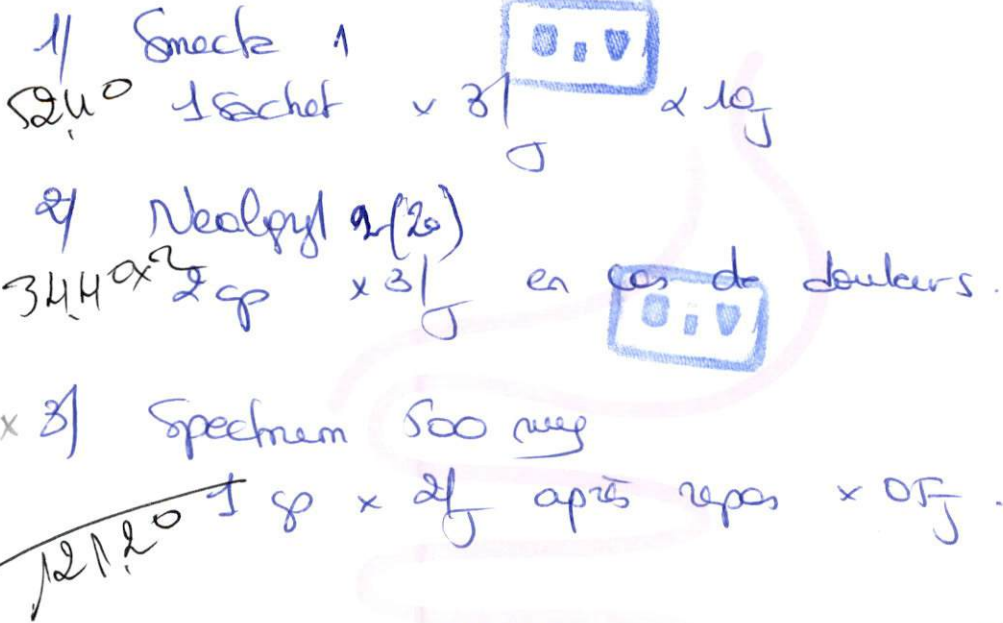 1/ Smecta 1
P.P.V
52,40 1 Sachet x 3/j x 10j
2/ Nealgyl 2 (20)
34,40 x 2 2 cp x 3/j en cas de douleurs.
P.P.V
x 3/ Spectrum 500 mg
1 cp x 2/j après repas x 05j.
121,20